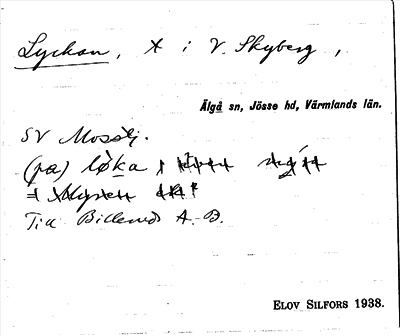 Lyckan, × i V. Skyberg,
Älgå sn, Jösse hd, Värmlands län.
SV Mossvij.
(på) løka
Till Billerud A.-B.
ELOV SILFORS 1938.